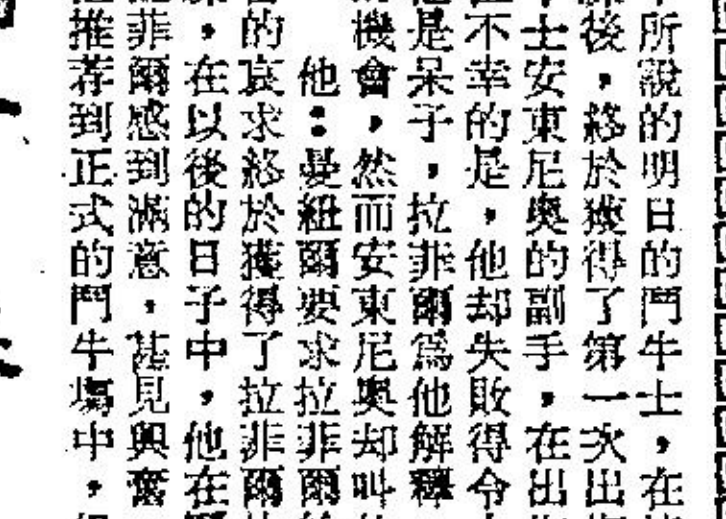 所說的明日的鬥牛士，在
後，終於獲得了第一次出
士安東尼奧的副手，在出
不幸的是，他却失敗得令
是呆子，拉菲爾為他解釋
機會，然而安東尼奧却叫
他：曼紐爾要求拉菲爾
的哀求終於獲得了拉菲爾
，在以後的日子中，他在
菲爾感到滿意，甚見興奮
推荐到正式的鬥牛場中，